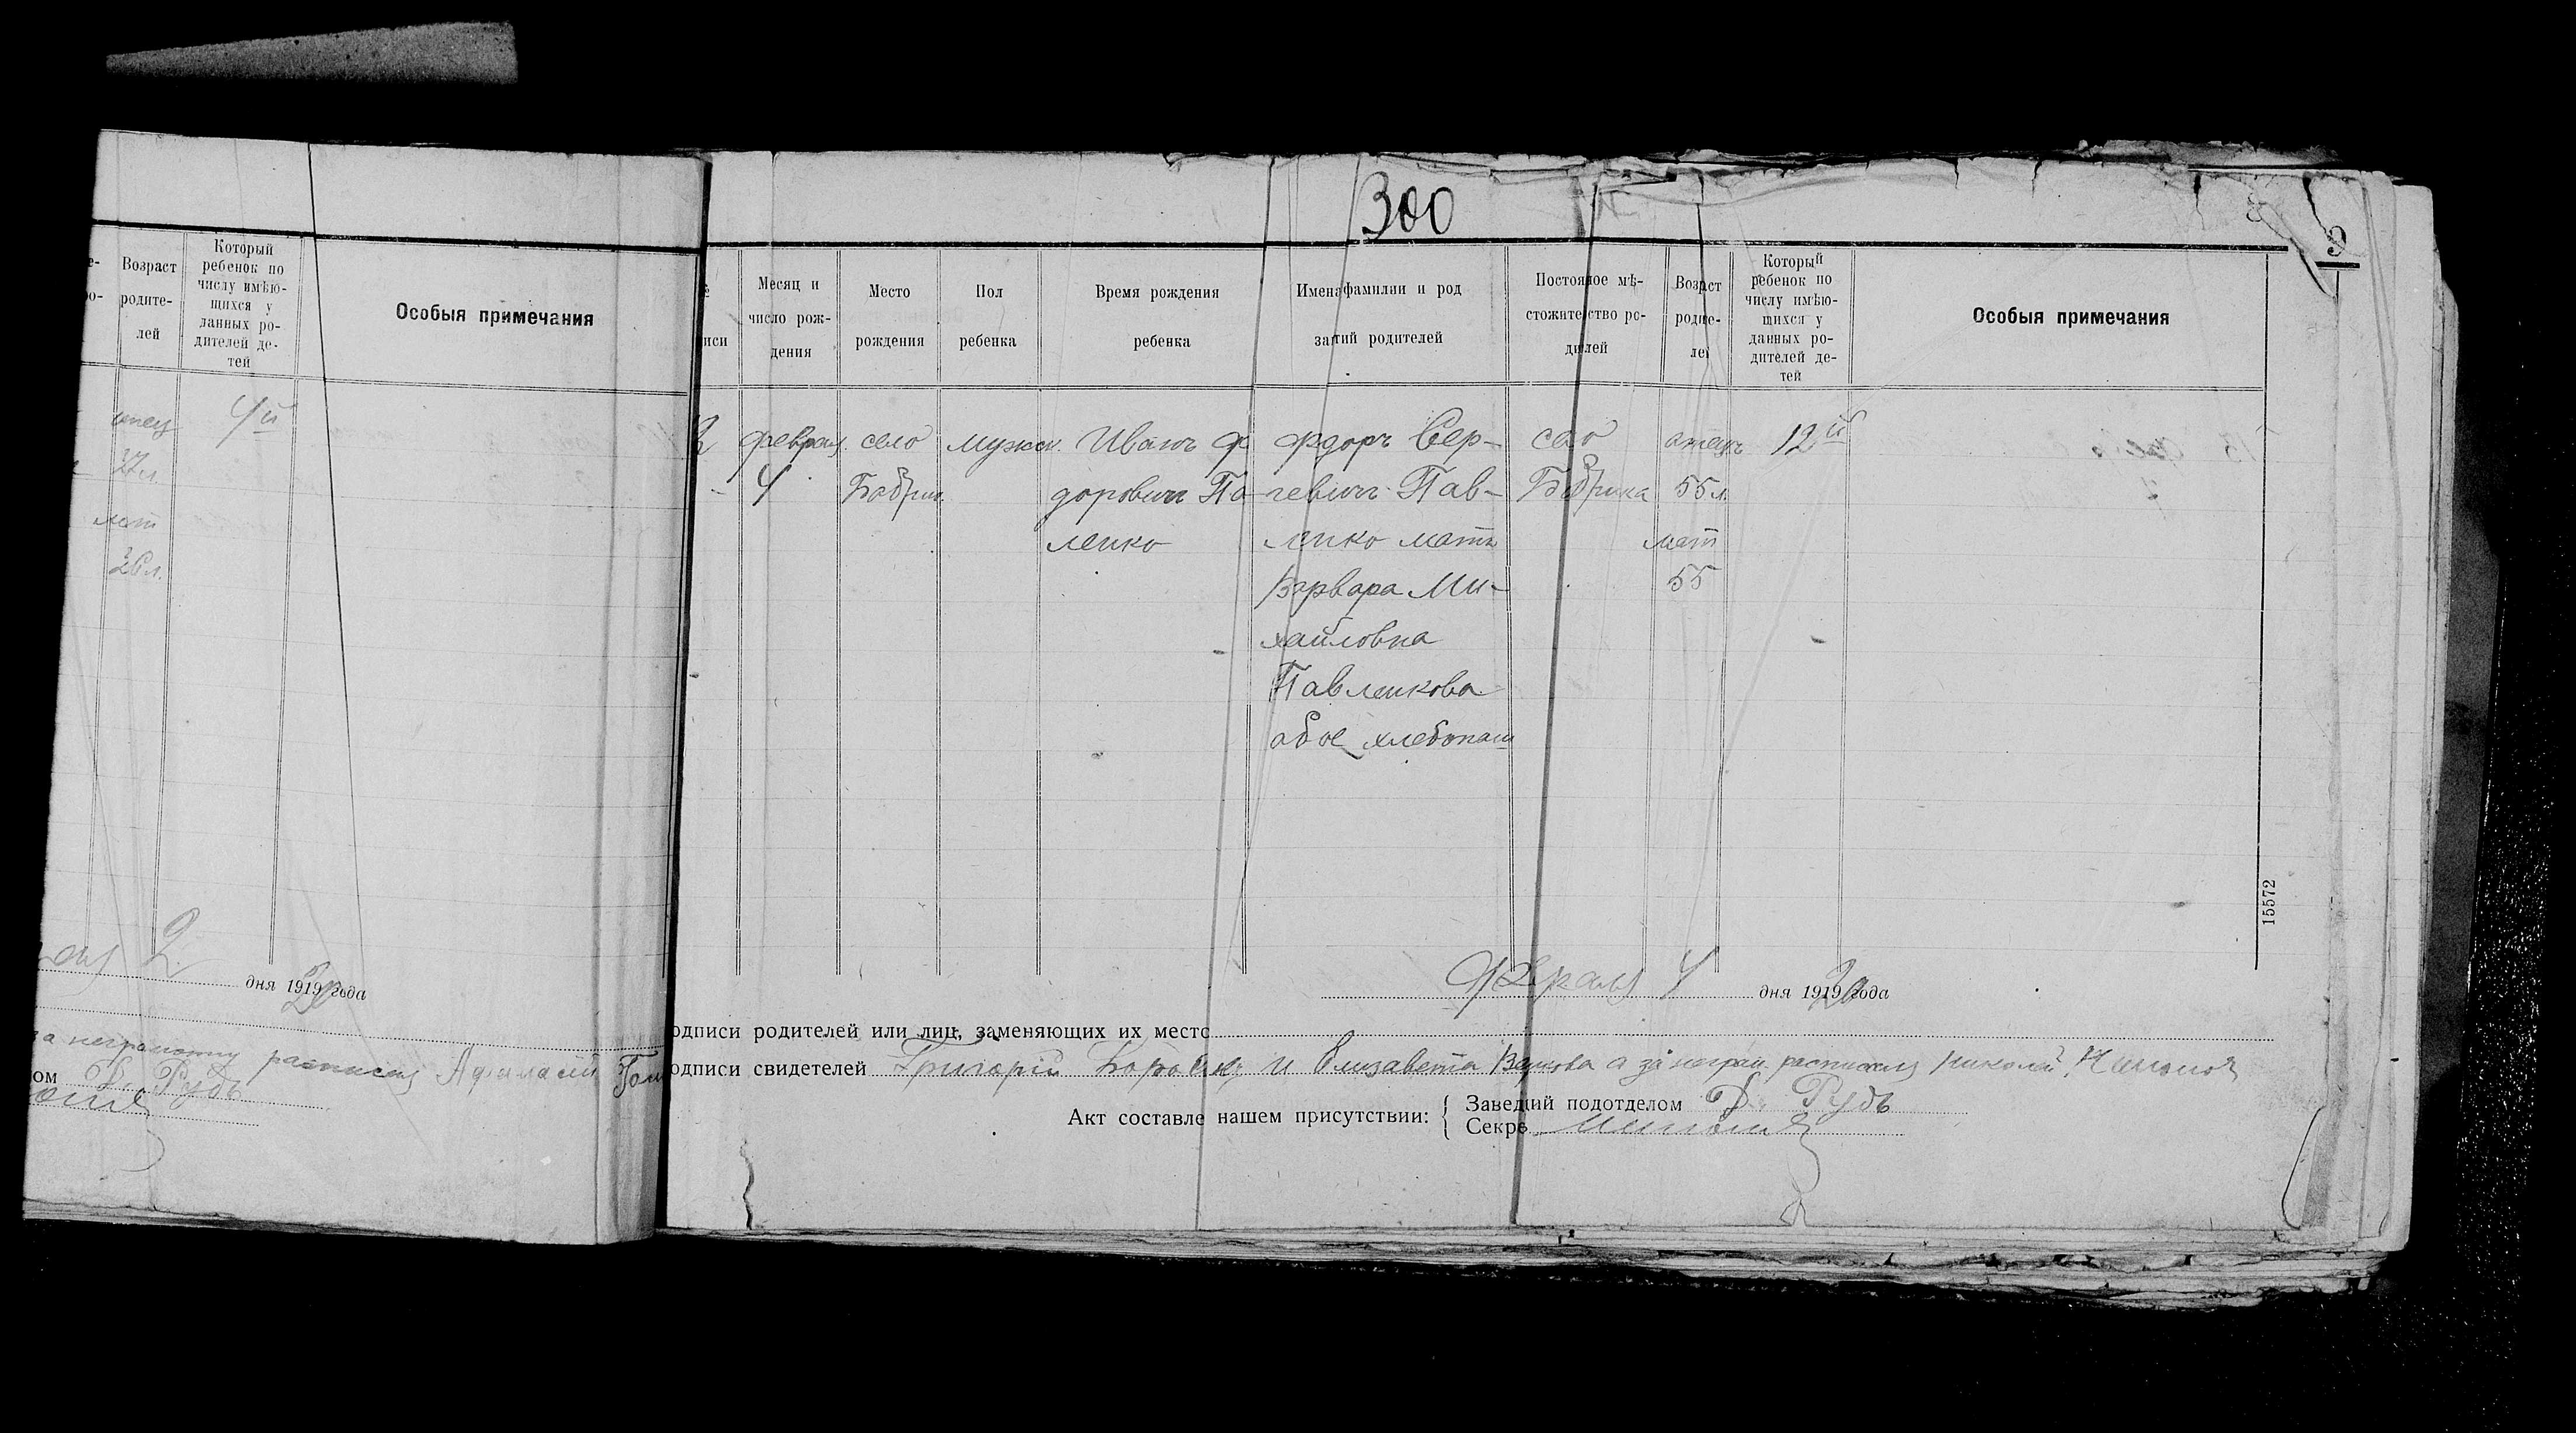 300
9
Возраст
родите-
лей
Который
ребенок по
числу имѣю-
щихся у
данных ро-
дителей де-
тей
Особыя примечания
отец
37 л.
мат
36 л.
4й
2
дня 1919 года
20
за неграмотну расписался Афанасий
Рудь
Месяц и
число рож-
дения
Место
рождения
Пол
ребенка
Время рождения
ребенка
Имена фамилии и род
занятий родителей
Постояное мѣ-
стожительство ро-
дителей
Возраст
родите-
лей
Который
ребенок по
числу имѣю-
щихся у
данных ро-
дителей де-
тей
Особыя примечания
феврал.
4
село
Бобрик
мужск.
Иванъ Ф
доровичъ Па
ленко
Фдоръ Сер-
гевичъ Пав-
ленко мать
Варвара Ми-
хайловна
Павленкова
обое хлебопаш
село
Бобрика
отецъ
55 л.
мат
55
12й
15572
Февраля 4 дня 1919 года
20
одписи родителей или лиц, заменяющих их место
одписи свидетелей Григорій Боровик и Елизавета а за неграм. расписался Николай
Акт составле нашем присутствии:
Заведий подотделом Рудь
Секре